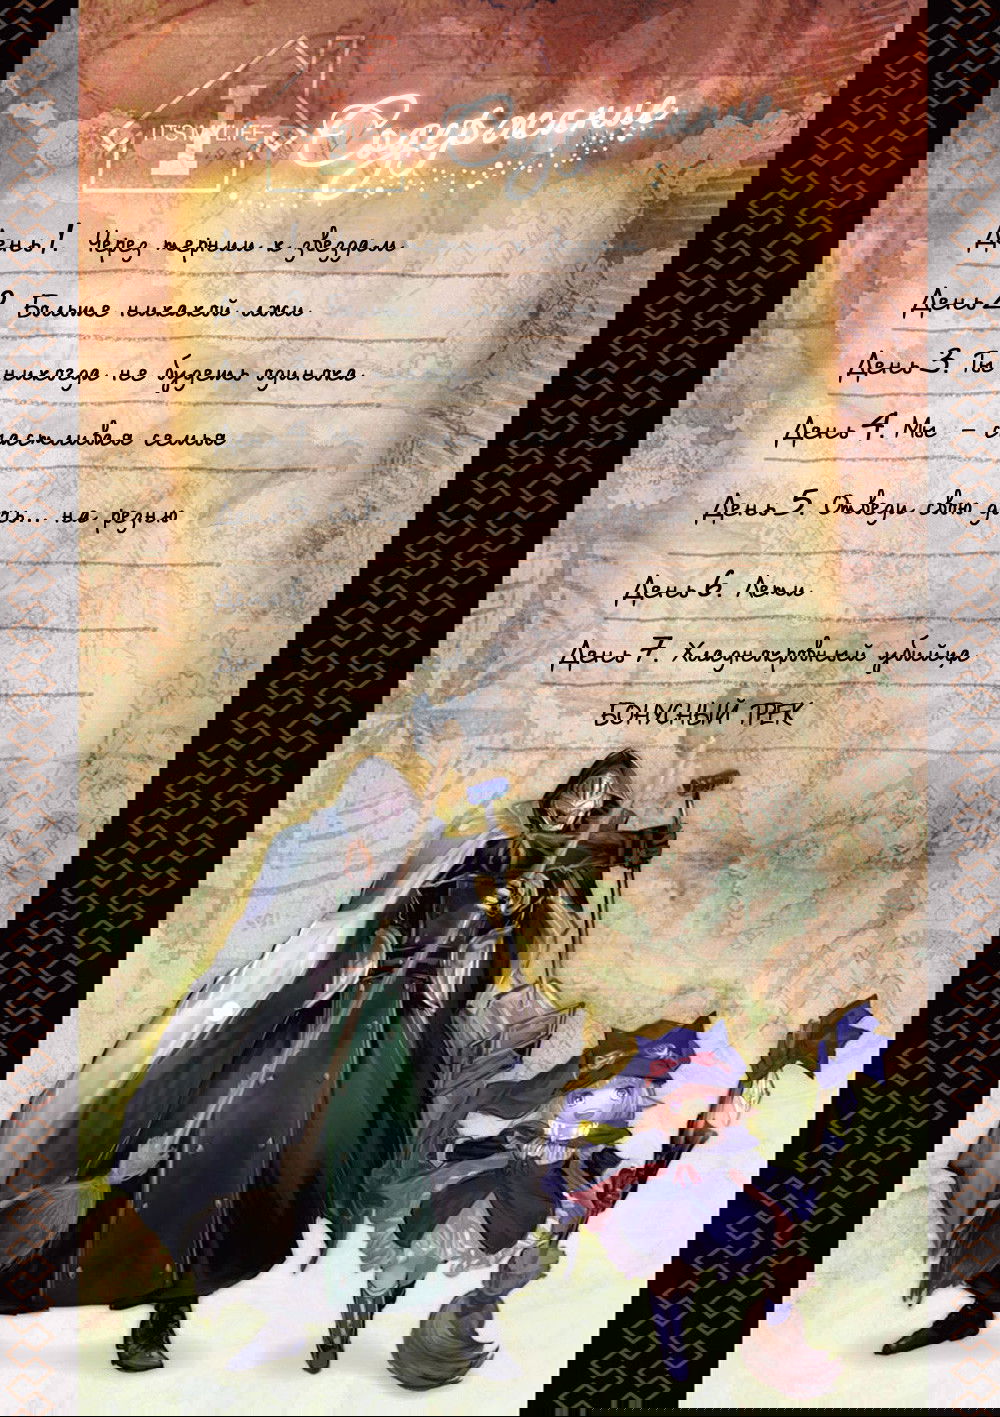 IT'S MY LIFE
Содержание
День 1. Через тернии к звездам
День 2. Больше никакой лжи
День 3. Ты никогда не будешь одинока
День 4. Мы - счастливая семья
День 5. Отведи свою дочь... на резню
День 6. Дети
День 7. Хладнокровный убийца
БОНУСНЫЙ ТРЕК